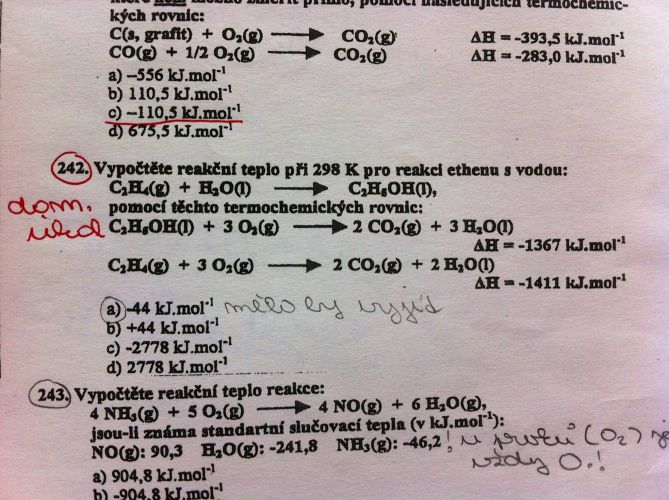 které není možno změřit přímo, pomocí následujících termochemic-
kých rovnic:
C(s, grafit) + O₂(g) ⟶ CO₂(g) ΔH = -393,5 kJ.mol⁻¹
CO(g) + 1/2 O₂(g) ⟶ CO₂(g) ΔH = -283,0 kJ.mol⁻¹
a) –556 kJ.mol⁻¹
b) 110,5 kJ.mol⁻¹
c) –110,5 kJ.mol⁻¹
d) 675,5 kJ.mol⁻¹
242. Vypočtěte reakční teplo při 298 K pro reakci ethenu s vodou:
C₂H₄(g) + H₂O(l) ⟶ C₂H₅OH(l),
dom. pomocí těchto termochemických rovnic:
úkol C₂H₅OH(l) + 3 O₂(g) ⟶ 2 CO₂(g) + 3 H₂O(l)
ΔH = -1367 kJ.mol⁻¹
C₂H₄(g) + 3 O₂(g) ⟶ 2 CO₂(g) + 2 H₂O(l)
ΔH = -1411 kJ.mol⁻¹
a) -44 kJ.mol⁻¹ mělo by vyjít
b) +44 kJ.mol⁻¹
c) -2778 kJ.mol⁻¹
d) 2778 kJ.mol⁻¹
243. Vypočtěte reakční teplo reakce:
4 NH₃(g) + 5 O₂(g) ⟶ 4 NO(g) + 6 H₂O(g),
jsou-li známa standartní slučovací tepla (v kJ.mol⁻¹):
NO(g): 90,3 H₂O(g): -241,8 NH₃(g): -46,2 ! u prvků (O₂) je
vždy 0.!
a) 904,8 kJ.mol⁻¹
b) -904,8 kJ.mol⁻¹